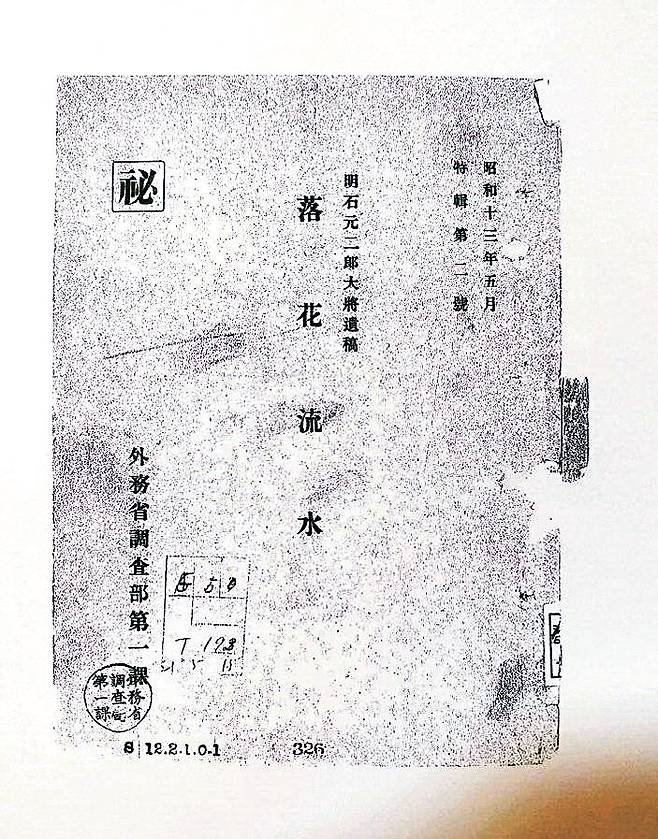 昭和十三年五月
特輯第二號
明石元二郎大將遺稿
落花流水
祕
外務省調査部第一課
A 5 0
T 198
外務省
調査部
第一課
S 12.2.1.0-1
326